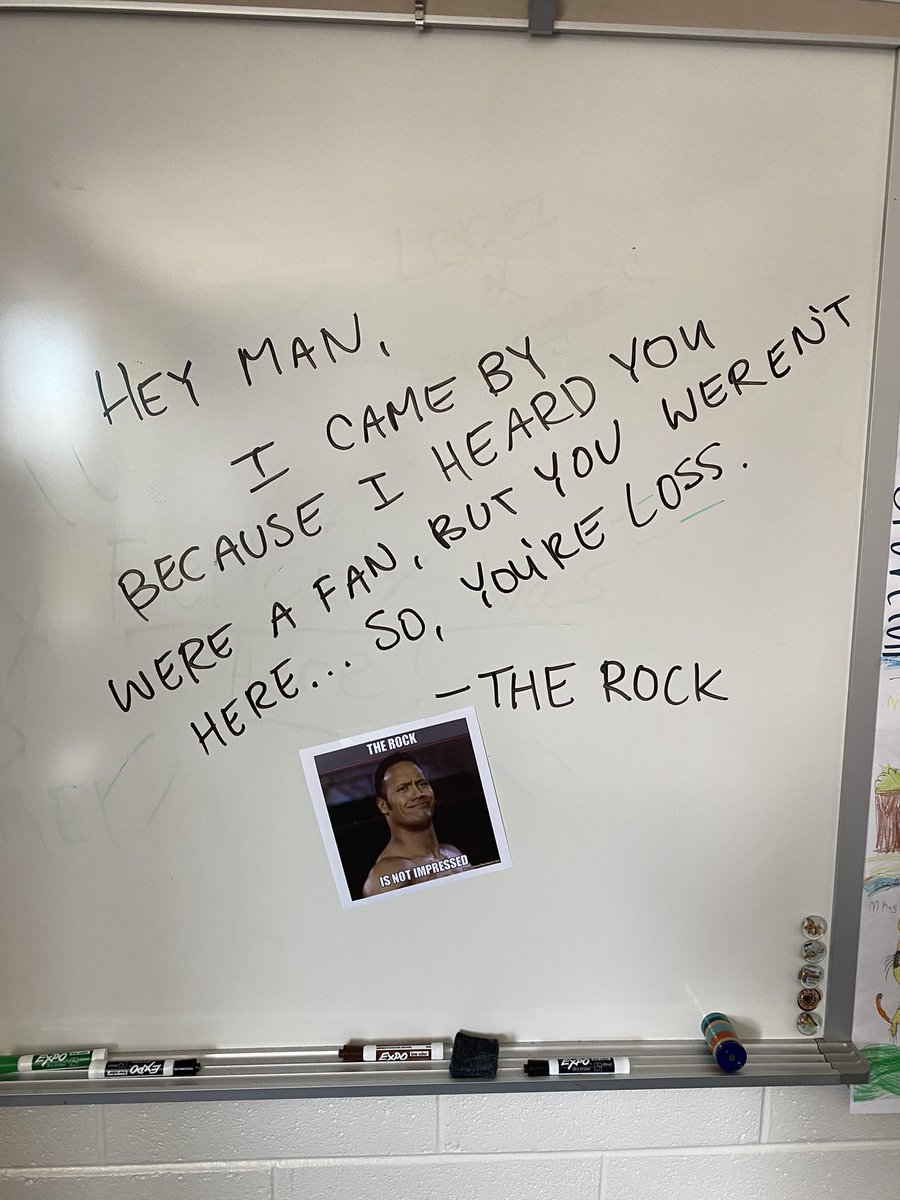 HEY MAN,
I CAME BY
BECAUSE I HEARD YOU
WERE A FAN, BUT YOU WEREN'T
HERE... SO, YOU'RE LOSS.
- THE ROCK
THE ROCK
IS NOT IMPRESSED
EXPO
EXPO
EXPO
EXPO